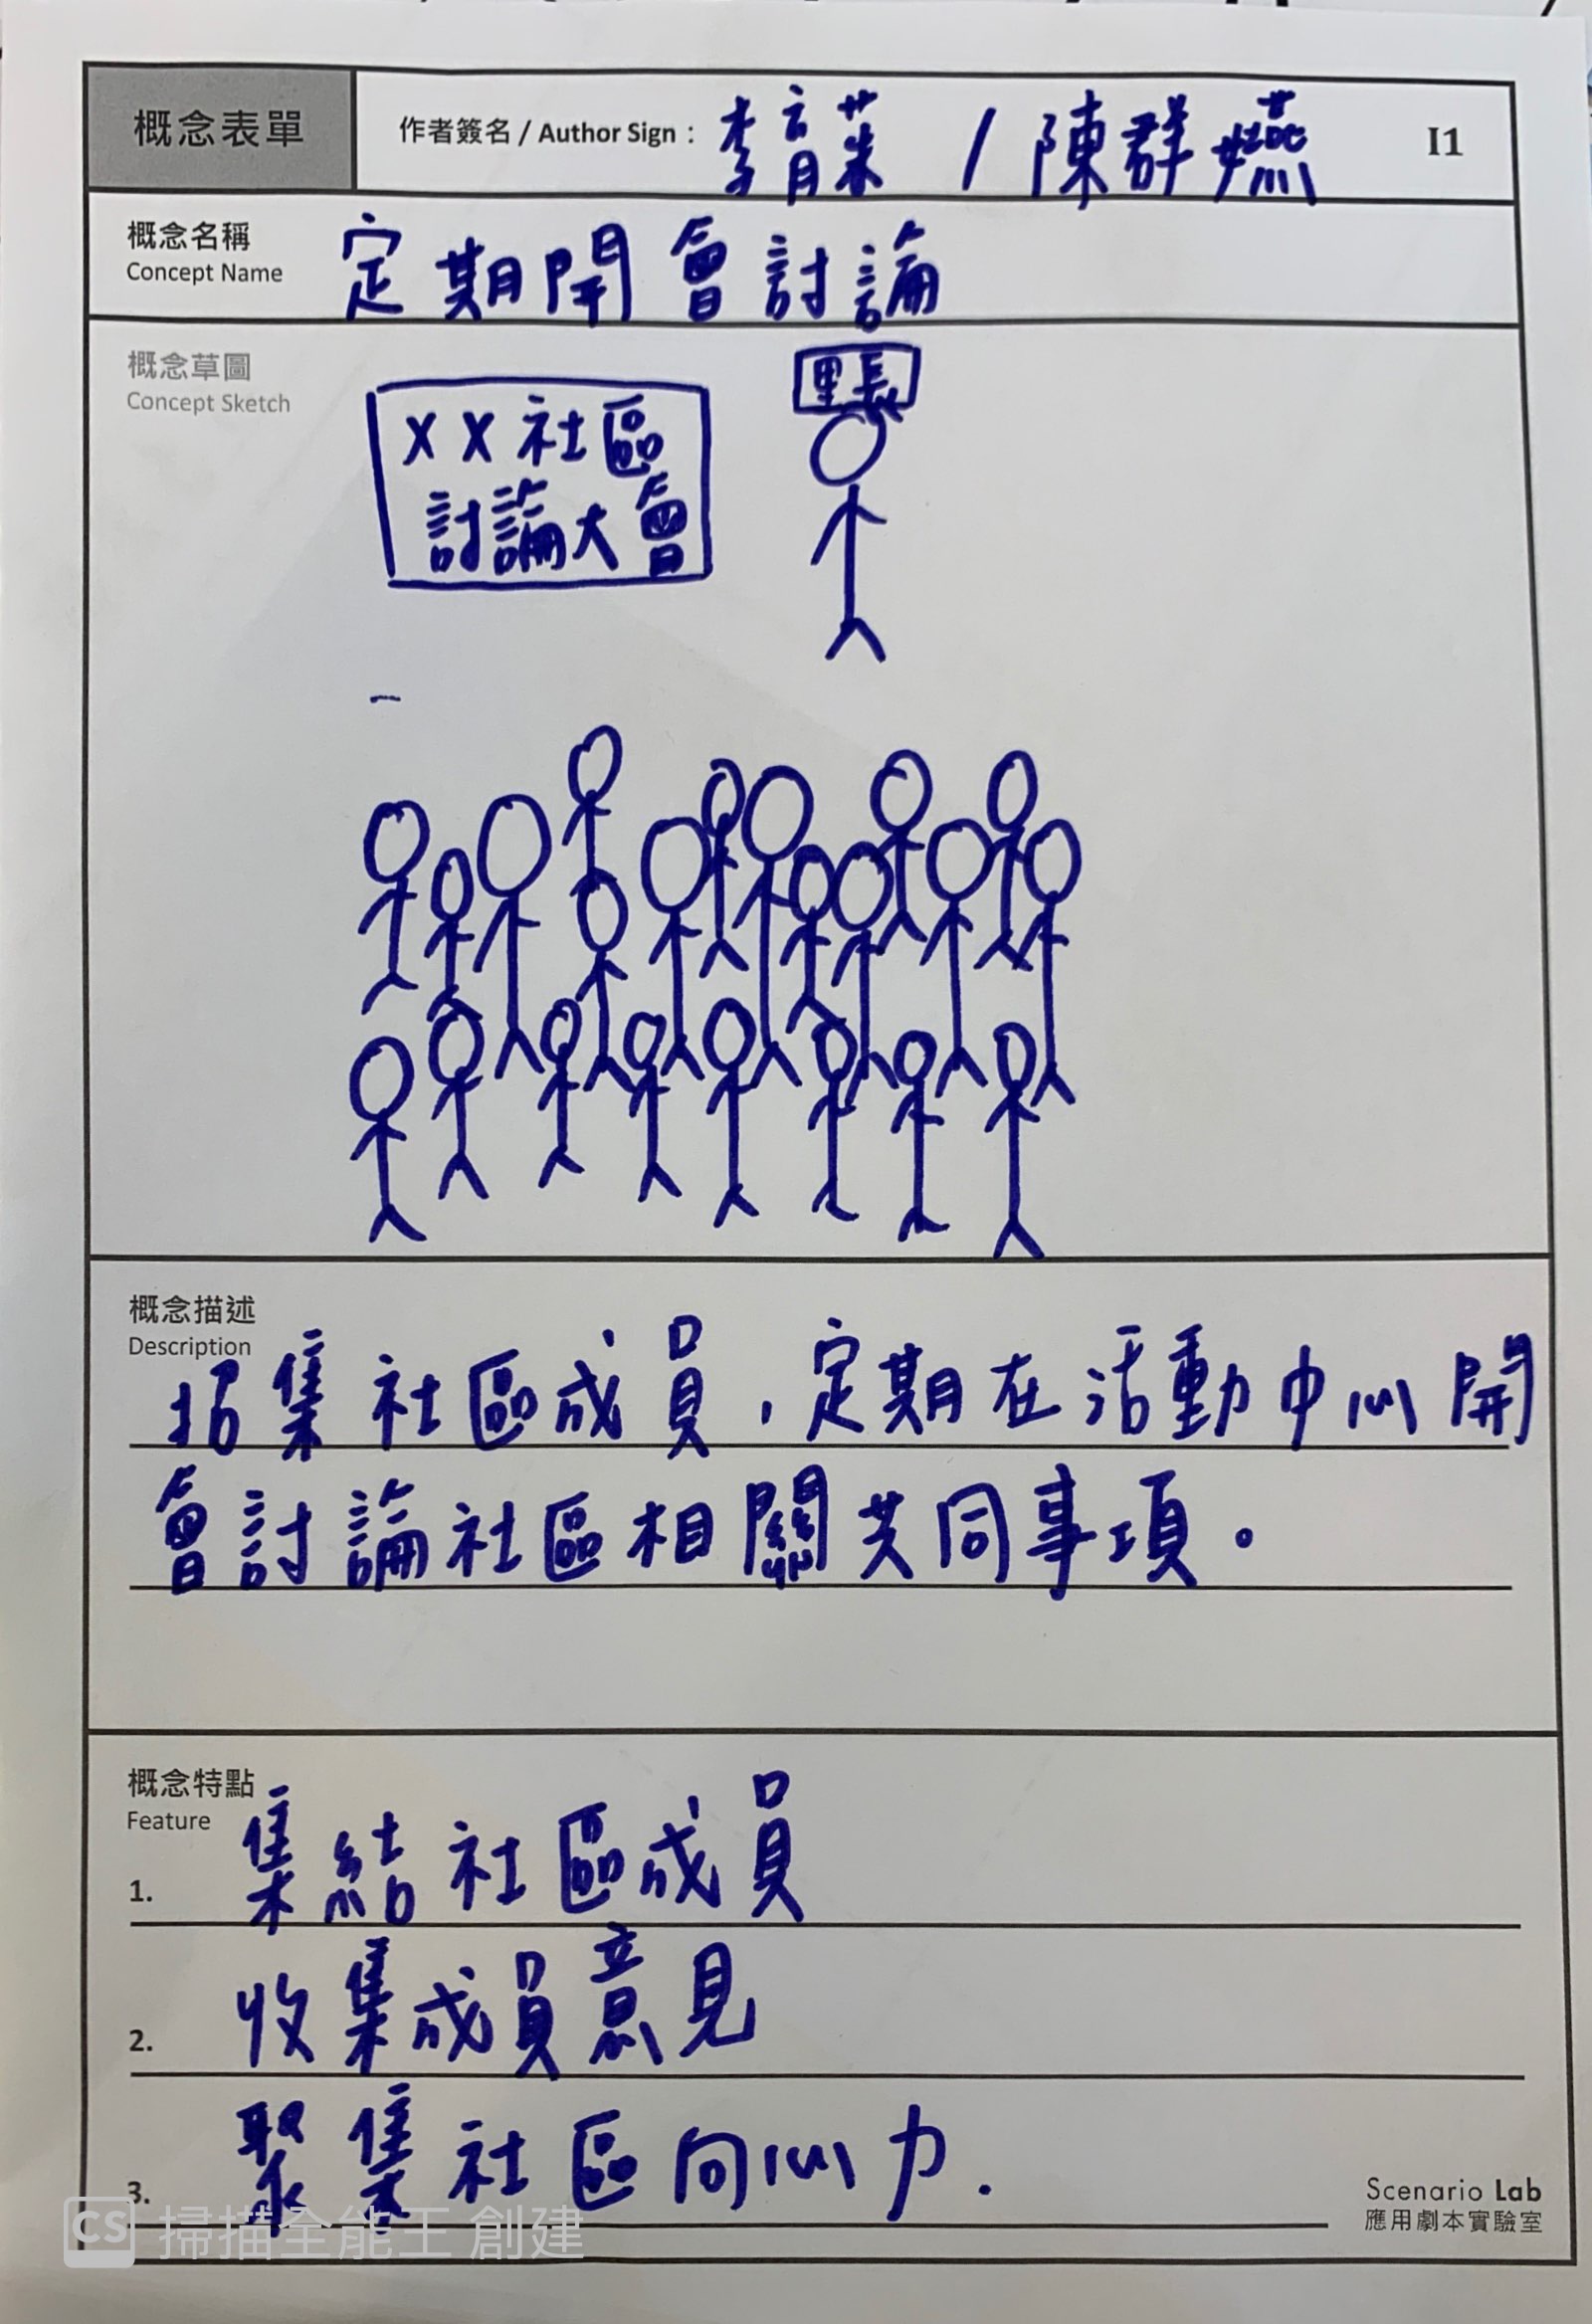 概念表單
作者簽名 / Author Sign : 李育菜 / 陳群嬿
I1
概念名稱
Concept Name
定期開會討論
概念草圖
Concept Sketch
里長
XX社區
討論大會
概念描述
Description
招集社區成員，定期在活動中心開
會討論社區相關共同事項。
概念特點
Feature
1. 集結社區成員
2. 收集成員意見
3. 聚集社區向心力.
Scenario Lab
應用劇本實驗室
CS 掃描全能王 創建